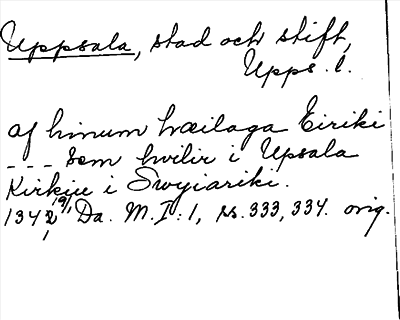 Uppsala, stad och stift,
Upps. l.
af hinum hæilaga Eiriki
--- Sem hvilir i Upsala
Kirkiu i Swyiariki.
1342 19/1, Da. M. I: 1, ss. 333, 334. orig.